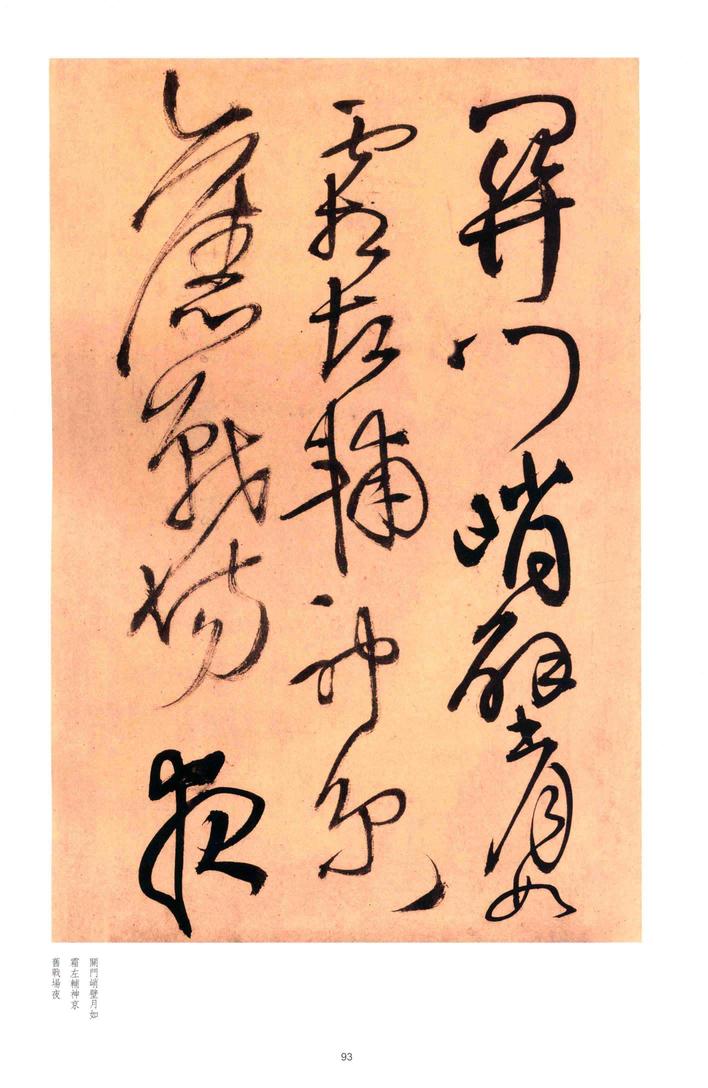 關門峭壁月如
霜左輔神京
舊戰場夜
關門峭壁月如
霜左輔神京
舊戰場夜
93